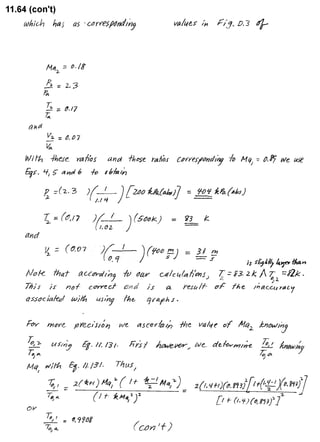 11.64 (con't)
which has as corresponding values in Fig. D.3 of
Ma₂ = 0.18
P₂/Pa = 2.3
T₂/Ta = 0.17
and
V₂/Va = 0.07
With these ratios and those ratios corresponding to Ma, = we use
Eqs. 4, 5 and 6 to obtain
P₂ = (2.3)(1/1.14)[200 kPa(abs)] = 404 kPa(abs)
T₂ = (0.17)(1/1.02)(500K) = 83 K
and
V₂ = (0.07)(1/0.9)(400 m/s) = 31 m/s
is slightly larger than
Note that according to our calculations, T₂ = 83.2K
This is not correct and is a result of the inaccuracy
associated with using the graphs.
For more precision we ascertain the value of Ma₂ knowing
T₀,₂/T₀,a using Eq. 11.131. First however, we determine T₀,₁/T₀,a knowing
Ma, with Eq. 11.131. Thus,
T₀,₁/T₀,a = 2(k+1)Ma₁²(1+ (k-1)/2 Ma₁²)/(1+kMa₁²)² = 2(1.4+1)(0.893)²[1+((1.4-1)/2)(0.893)²]/[1+(1.4)(0.893)²]²
or
T₀,₁/T₀,a = 0.9908
(con't)